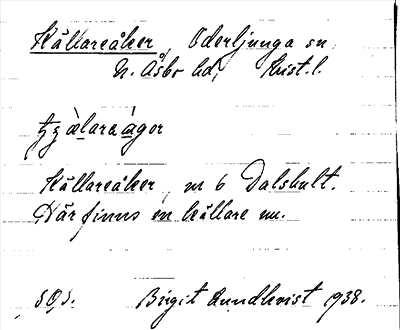 Källareåker, Oderljunga sn.
N. Åsbo hd, Krist. l.
tɟälareágor
Källareåker, m 6 Dalshult.
Här finns en källare nu.
SOJ. Birgit Lundkvist 1938.